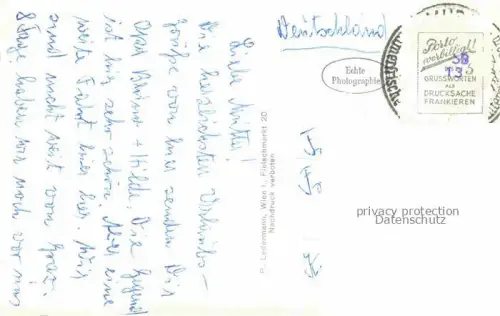 Deutschland
Echte
Photographie
Porto
verbilligt!
Mit 5
GRUSSWORTEN
ALS
DRUCKSACHE
FRANKIEREN
privacy protection
Datenschutz
P. Ledermann, Wien I., Fleischmarkt 20
Nachdruck verboten
Liebe Mutti!
Die herzlichsten Urlaubs-
grüße von hier senden Dir
+ Hilde. Die Gegend
ist hier sehr schön. Aber eine
weite Fahrt hier her. Wir
sind nicht weit von Graz.
8 Tage haben wir noch vor uns